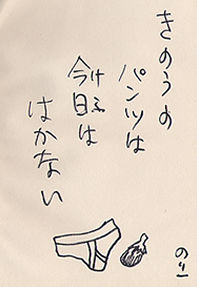 きのうの
パンツは
今日は
けふ
はかない
のりー